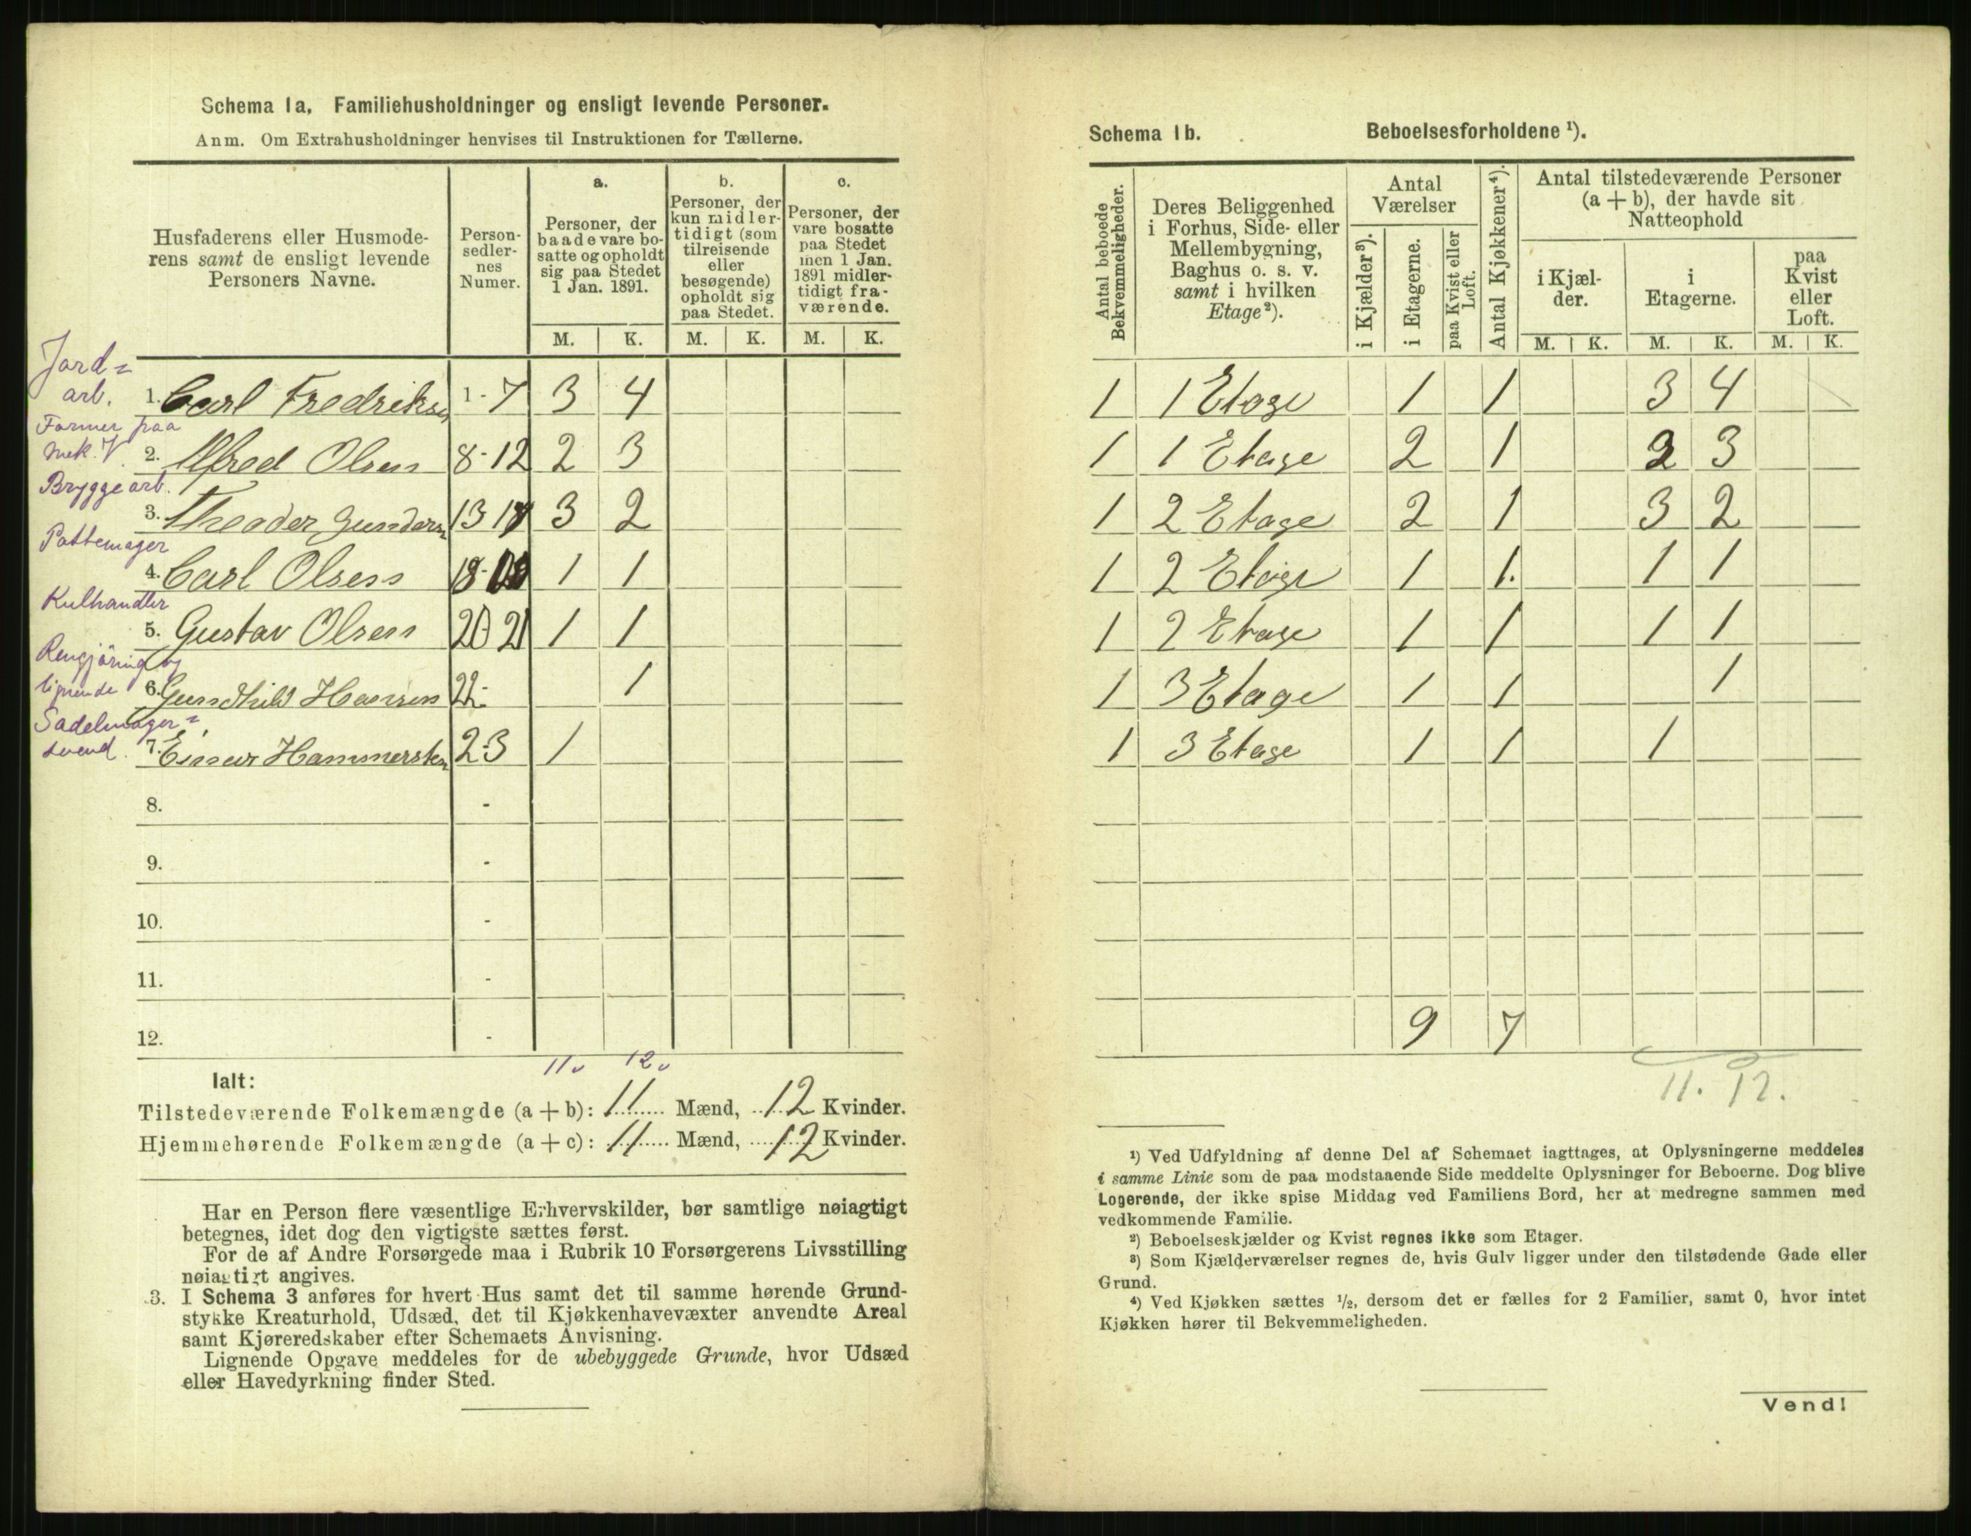 Schema 1a. Familiehusholdninger og ensligt levende Personer.
Anm. Om Extrahusholdninger henvises til Instruktionen for Tællerne.
Husfaderens eller Husmode-
rens samt de ensligt levende
Personers Navne.
Person-
sedler-
nes
Numer.
a.
Personer, der
baade vare bo-
satte og opholdt
sig paa Stedet
1 Jan. 1891.
b.
Personer, der
kun midler-
tidigt (som
tilreisende
eller
besøgende)
opholdt sig
paa Stedet.
c.
Personer, der
vare bosatte
paa Stedet
men 1 Jan.
1891 midler-
tidigt fra-
værende.
M. K. M. K. M. K.
Jord=
arb.
1. Carl Fredriksen 1-7 3 4
Former paa
mek. V.
2. Alfred Olsen 8-12 2 3
Bryggearb.
3. Theodor Gundersen 13 17 3 2
Pottemager
4. Carl Olsen 18- 1 1
Kulhandler
5. Gustav Olsen 20-21 1 1
Rengjöring og
lignende
6. Gundhild Hansen 22- 1
Sadelmager=
svend.
7. Einar Hammersten 23 1
8. -
9. -
10. -
11. -
12. -
11 12
Ialt:
Tilstedeværende Folkemængde (a + b): 11 Mænd, 12 Kvinder.
Hjemmehørende Folkemængde (a + c): 11 Mænd, 12 Kvinder.
Har en Person flere væsentlige Erhvervskilder, bør samtlige nøiagtigt
betegnes, idet dog den vigtigste sættes først.
For de af Andre Forsørgede maa i Rubrik 10 Forsørgerens Livsstilling
nøiagtigt angives.
3. I Schema 3 anføres for hvert Hus samt det til samme hørende Grund-
stykke Kreaturhold, Udsæd, det til Kjøkkenhavevæxter anvendte Areal
samt Kjøreredskaber efter Schemaets Anvisning.
Lignende Opgave meddeles for de ubebyggede Grunde, hvor Udsæd
eller Havedyrkning finder Sted.
Schema 1b. Beboelsesforholdene ¹).
Antal beboede
Bekvemmeligheder.
Deres Beliggenhed
i Forhus, Side- eller
Mellembygning,
Baghus o. s. v.
samt i hvilken
Etage²).
Antal
Værelser
i Kjælder³).
i Etagerne.
paa Kvist eller
Loft.
Antal Kjøkkener⁴).
Antal tilstedeværende Personer
(a + b), der havde sit
Natteophold
i Kjæl-
der.
i
Etagerne.
paa
Kvist
eller
Loft.
M. K. M. K. M. K.
1 1 Etage 1 1 3 4
1 1 Etage 2 1 2 3
1 2 Etage 2 1 3 2
1 2 Etage 1 1. 1 1
1 2 Etage 1 1 1 1
1 3 Etage 1 1 1
1 3 Etage 1 1 1
9 7
11. 12.
¹) Ved Udfyldning af denne Del af Schemaet iagttages, at Oplysningerne meddeles
i samme Linie som de paa modstaaende Side meddelte Oplysninger for Beboerne. Dog blive
Logerende, der ikke spise Middag ved Familiens Bord, her at medregne sammen med
vedkommende Familie.
²) Beboelseskjælder og Kvist regnes ikke som Etager.
³) Som Kjælderværelser regnes de, hvis Gulv ligger under den tilstødende Gade eller
Grund.
⁴) Ved Kjøkken sættes ½, dersom det er fælles for 2 Familier, samt 0, hvor intet
Kjøkken hører til Bekvemmeligheden.
Vend!